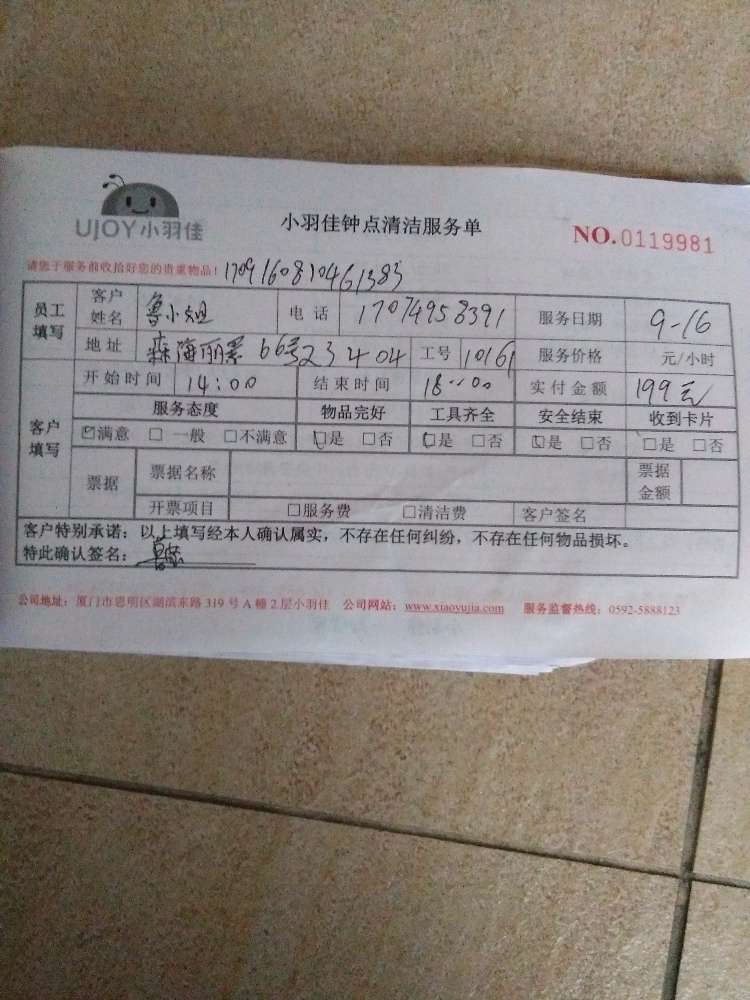 UJOY小羽佳
小羽佳钟点清洁服务单
NO.0119981
请您于服务前收拾好您的贵重物品！ 1709160810461383
员工填写 客户姓名 鲁小姐 电话 17074958391 服务日期 9-16
地址 森海丽景66号23404 工号 10161 服务价格 元/小时
客户填写 开始时间 14:00 结束时间 18:00 实付金额 199元
服务态度 物品完好 工具齐全 安全结束 收到卡片
☑满意 □一般 □不满意 ☑是 □否 ☑是 □否 ☑是 □否 □是 □否
票据 票据名称 票据金额
开票项目 □服务费 □清洁费 客户签名
客户特别承诺：以上填写经本人确认属实，不存在任何纠纷，不存在任何物品损坏。
特此确认签名：
公司地址：厦门市思明区湖滨东路319号A幢2层小羽佳 公司网站：www.xiaoyujia.com 服务监督热线：0592-5888123